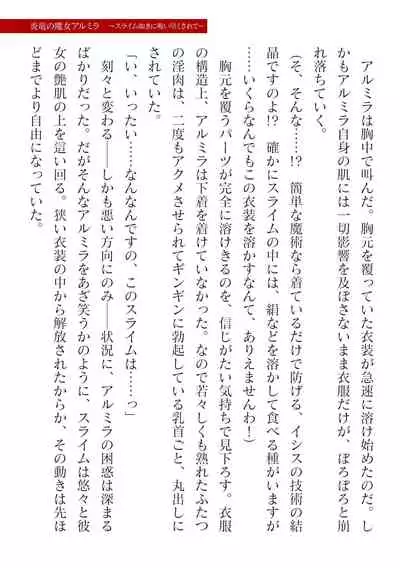 炎竜の魔女アルミラ　～スライム如きに吸い尽くされて～
　アルミラは胸中で叫んだ。胸元を覆っていた衣装が急速に溶け始めたのだ。し
かもアルミラ自身の肌には一切影響を及ぼさないまま衣服だけが、ぼろぼろと崩
れ落ちていく。
（そ、そんな……!?　簡単な魔術なら着ているだけで防げる、イシスの技術の結
晶ですのよ!?　確かにスライムの中には、絹などを溶かして食べる種がいますが
……いくらなんでもこの衣装を溶かすなんて、ありえませんわ！）
　胸元を覆うパーツが完全に溶けきるのを、信じがたい気持ちで見下ろす。衣服
の構造上、アルミラは下着を着けていなかった。なので若々しくも熟れたふたつ
の淫肉は、二度もアクメさせられてギンギンに勃起している乳首ごと、丸出しに
されていた。
「い、いったい……なんなんですの、このスライムは……っ」
　刻々と変わる――しかも悪い方向にのみ――状況に、アルミラの困惑は深まる
ばかりだった。だがそんなアルミラをあざ笑うかのように、スライムは悠々と彼
女の艶肌の上を這い回る。狭い衣装の中から解放されたからか、その動きは先ほ
どまでより自由になっていた。